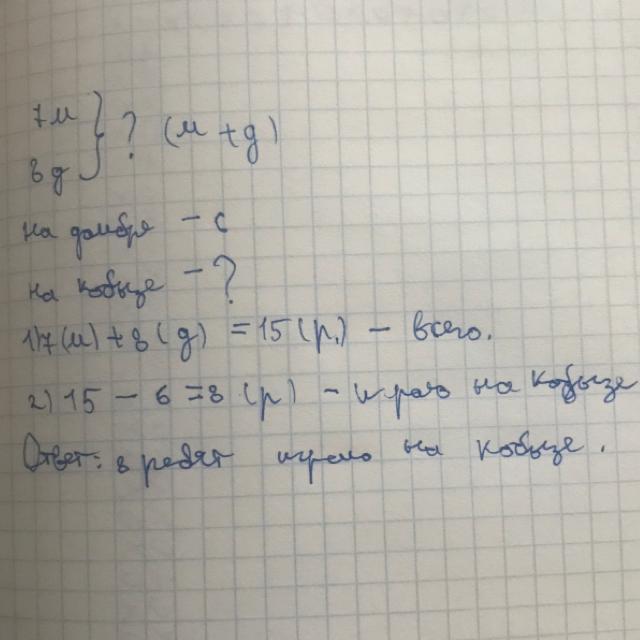 7м } ? (м + д)
8 д
на домбре – 6
на кобызе – ?
1) 7 (м) + 8 (д) = 15 (р.) – всего.
2) 15 – 6 = 8 (р) – играло на кобызе
Ответ: 8 ребят играло на кобызе.